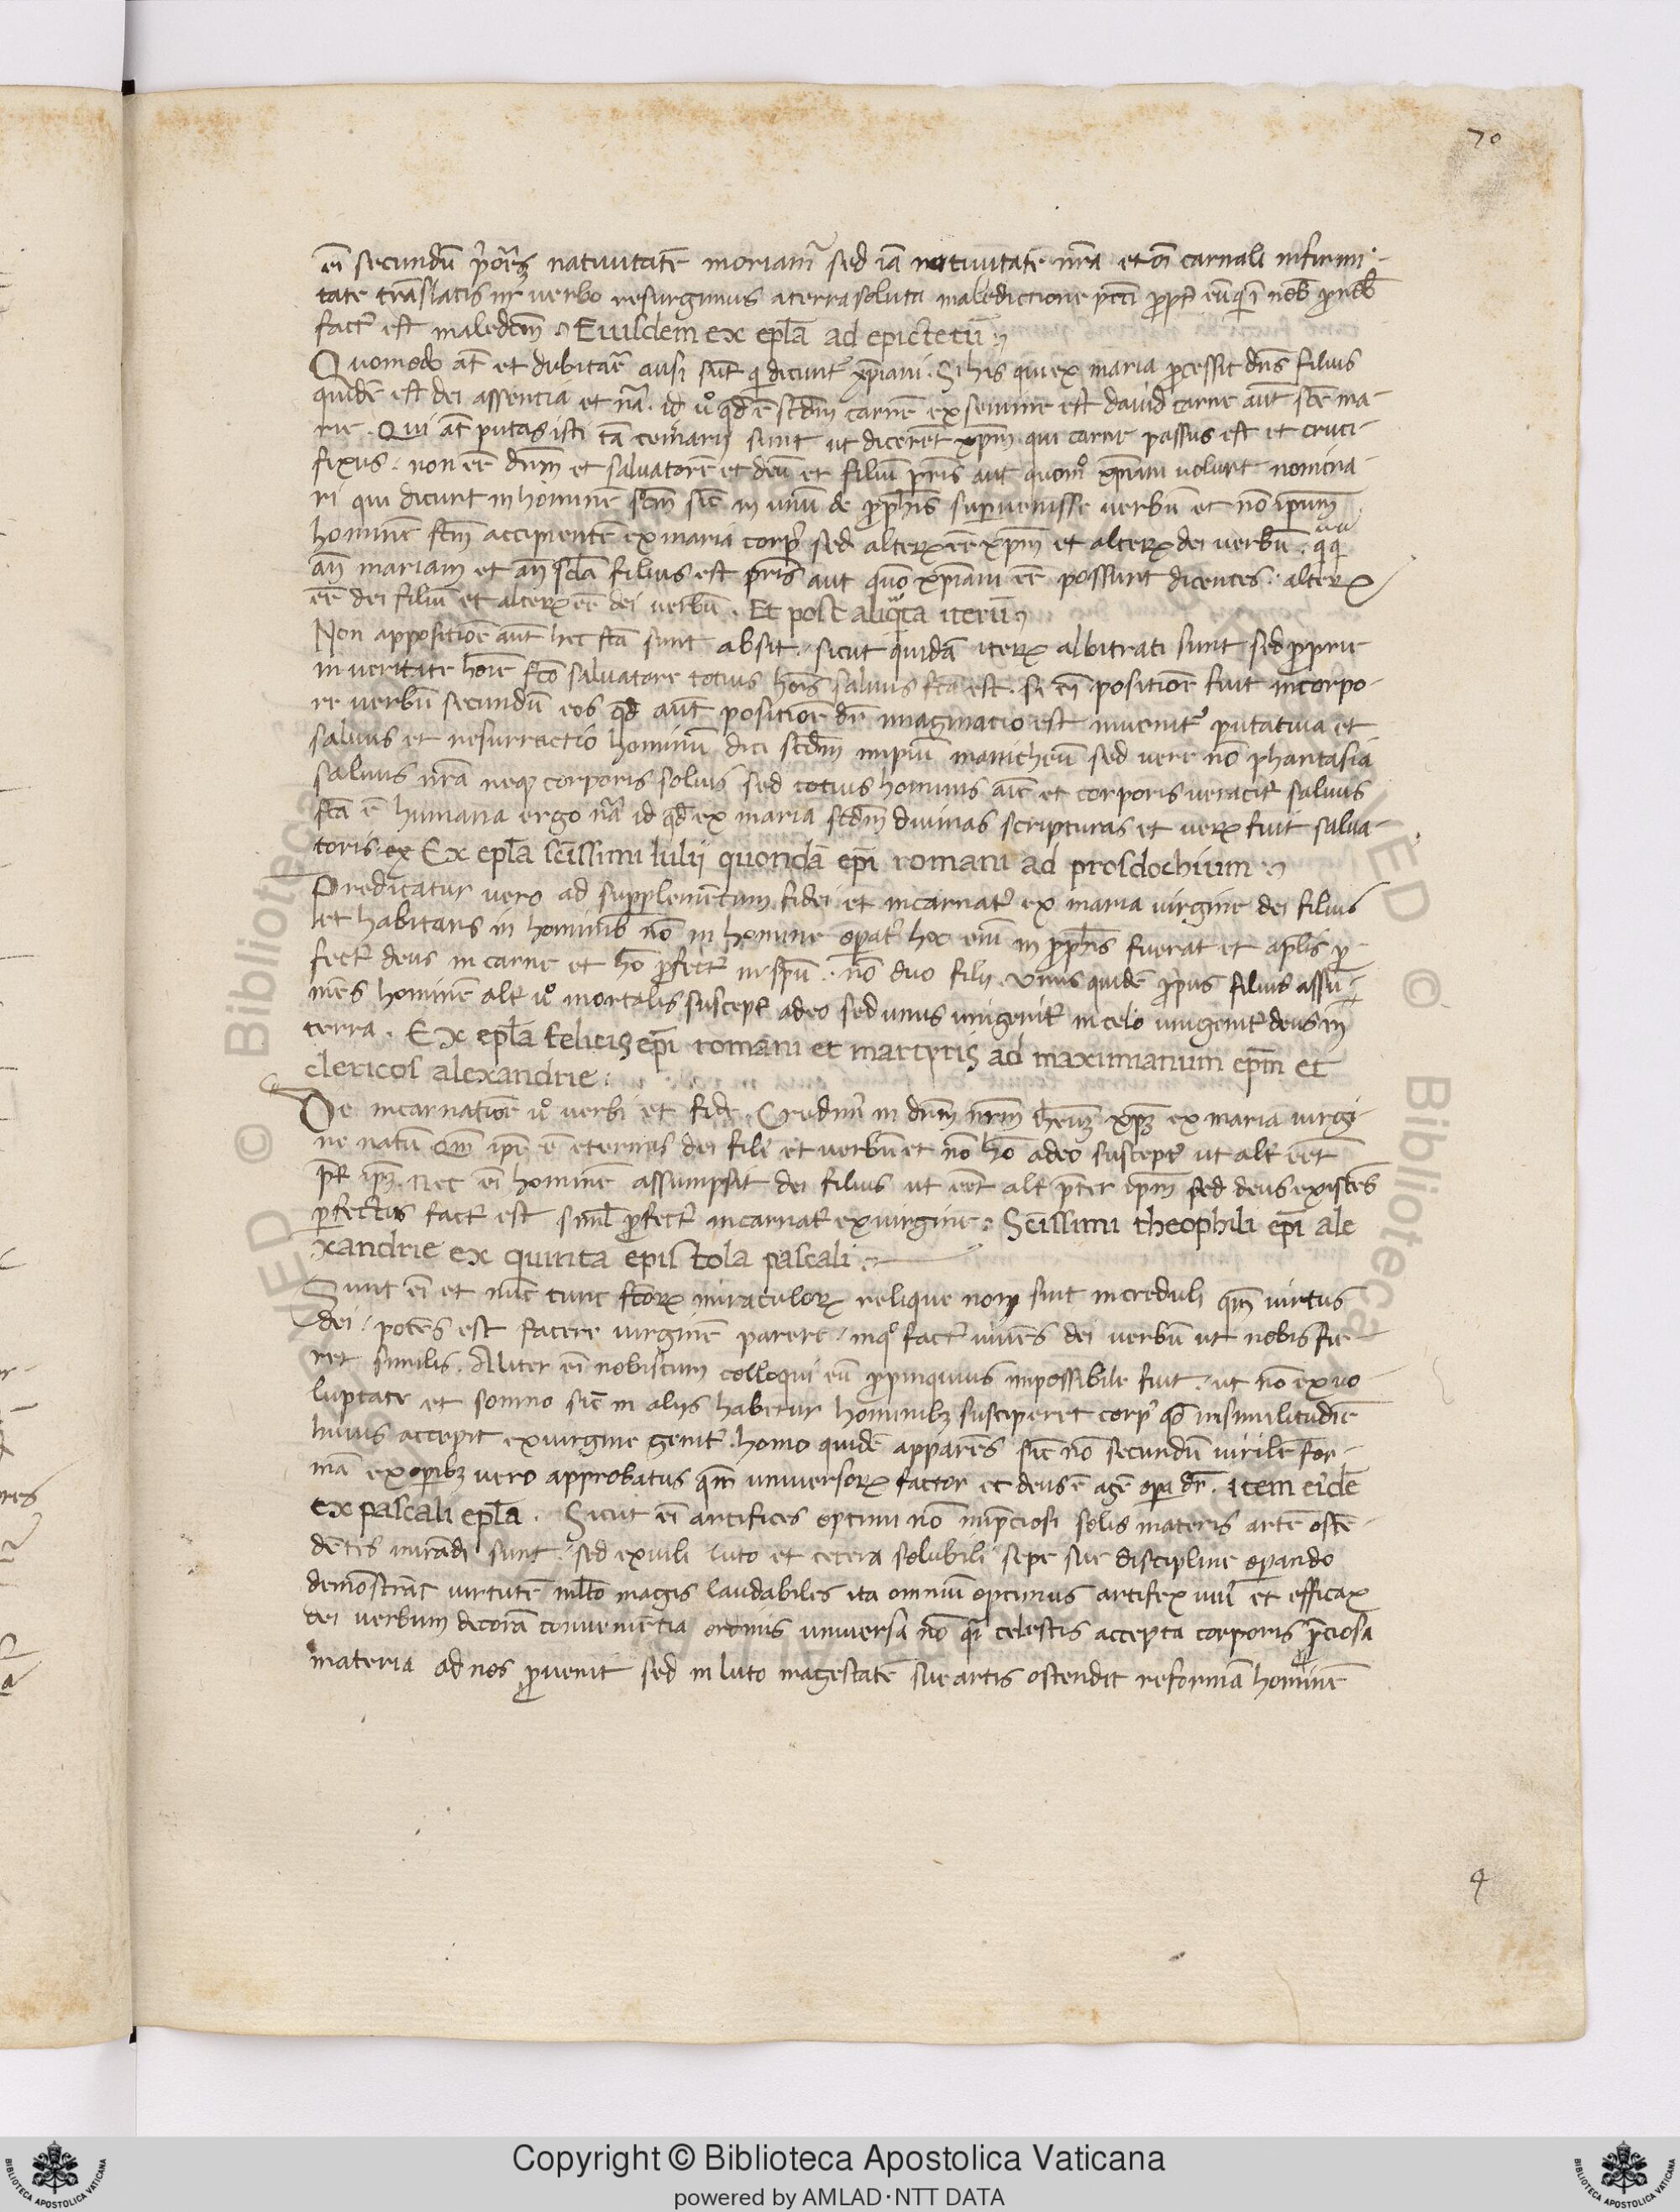 70
eī secundū p̓orē natiuitatē moriam̄ sed iā natiuitatē nr̄a et oī carnali infirmi-
tate trāslatis nr̄ verbo resurgimus a terra soluta maledictione pctī ꝓpt̄ eū qī nob̄ ꝓ nob̄
fact̓ est maledcm̄. Eiusdem ex epl̄a ad epictetū
Quomodo at̄ et dubitar̄e ausi sūt qi dicunt̓ xp̄iani. Si his qui ex maria ꝓcessit dn̄s filius
quidē est dei assencia et nā. id uͦ qd̄ ē scdm̄ carnē ex semine est dauid carne aut̄ scē ma-
rie. Qui at̄ putas isti tā temerarii sunt ut dicerēt xpm̄ qui carne passus est et cruci-
fixus. non eē dn̄m et saluatorē et deū et filiū pr̄is aut quomͦ xp̄iani uolunt nomina-
ri qui dicunt in hominē scm̄ sic̄ in unū de ꝓph̄is superuenisse verbū et nō ipsum
hominē fcm̄ accipientē ex maria corp̓ sed alterꝝ eē xpm̄ et alterꝝ dei verbū. q̄ qi
an̄ mariam et an̄ sc̄la filius est pr̄is aut quō xp̄iani eē possunt dicentes. alterꝝ
eē dei filiū et alterꝝ eē dei verbū. Et post aliqᵃta iterū
Non appositiōe aut̄ hec fc̄a sunt absit. sicut quidā iterꝝ albitrati sunt sed ꝓprie
in veritate hoīe fcō saluatore totius hoīs salus fc̄a est. si eī positiōe fuit in corpo-
re verbū secundū eos qd̄ aut̄ positiōe dr̄ imaginatio est inuenit̓ putatiua et
saluus et resurrectio hominū dici scdm̄ impiū manicheū sed vere nō phantasia
saluus nr̄a neqꝫ corporis solius sed totius hominis aīe et corporis veracit̓ saluus
fc̄a ē humana ergo nā id qd̄ ex maria scdm̄ diuinas scripturas et verꝝ fuit salua-
toris. ex Ex epl̄a scīssimi Iulij quondā ep̄i romani ad prosdochium
Predicatur vero ad supplementum fidei et incarnat̓ ex maria uirgine dei filius
et habitans in hominib̄ nō in homine oꝑat̓ hoc enī in ꝓph̄is fuerat et apl̄is ꝑ-
fect̓ deus in carne et hō ꝑfect̓ in spū. nō duo filij. Unus quidē ꝓpus filius assu-
mēs hominē alt̓ uͦ mortalis suscept̓ a deo sed unus unigenit̓ in celo unigenit̓ deus in
terra. Ex epl̄a felicis ep̄i romani et martyris ad maximianum ep̄m et
clericos alexandrie.
De incarnatiōe uͦ verbi et fide. Credim̓ in dn̄m nr̄m ihesuꝫ xp̄ꝫ ex maria uirgi-
ne natū qm̄ ip̄e ē eternus dei fili̓ et verbū et nō hō a deo suscept̓ ut alt̓ eēt
p̄t̓ ip̄ꝫ. Nec eī hominē assumpsit dei filius ut eēt alt̓ p̄ter ip̄m sed deus existēs
ꝑfectus fact̓ est simł ꝑfect̓ incarnat̓ ex uirgine. Scīssimi theophili ep̄i ale
xandrie ex quinta epistola pascali
Sunt eī et nūc tunc fc̄orꝝ miraculorꝝ relique non sint increduli qm̄ uirtus
dei. potēs est facere uirginē parere. in qͦ fact̓ uiuēs dei verbū ut nobis fie-
ret similis. Aliter eī nobiscum colloqui eū ꝓpinquius impossibile fuit. ut nō ex uo-
luptate et somno sic̄ in alijs habetur hominibꝫ susciperet corp̓ qd̄ in similitudīe
huius accepit ex uirgine genit̓. homo quidē apparēs sic̄ nō secundū uirilē for-
mā ex oꝑibꝫ vero approbatus qm̄ uniuersorꝝ factor et deus ē agē oꝑa dr̄. Item eidē
ex pascali epl̄a. Sicut eī artifices optimi nō in p̄ciosi solis materiis artē ostē-
dētes mirādi sunt. sed ex uili luto et cetera solubili sepe sue discipline oꝑando
demōstrāt uirtutē ml̄to magis laudabiles ita omniū optimus artifex uiuū et efficax
dei verbum decorā conuenientia ordinis uniuersa nō qᵃi celestis accepta corporis p̄ciosa
materia ad nos ꝓuenit sed in luto magestatē sue artis ostendit reformā hominē
4
Copyright © Biblioteca Apostolica Vaticana
powered by AMLAD·NTT DATA